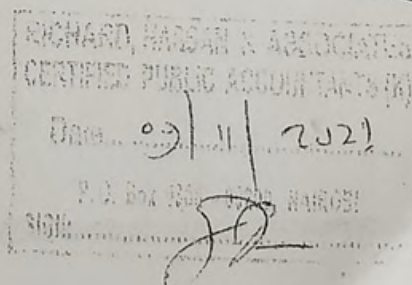 RICHARD, HASSAN & ASSOCIATES
CERTIFIED PUBLIC ACCOUNTANTS (K)
Date 09/11/2021
P. O. Box NAIROBI
SIGN